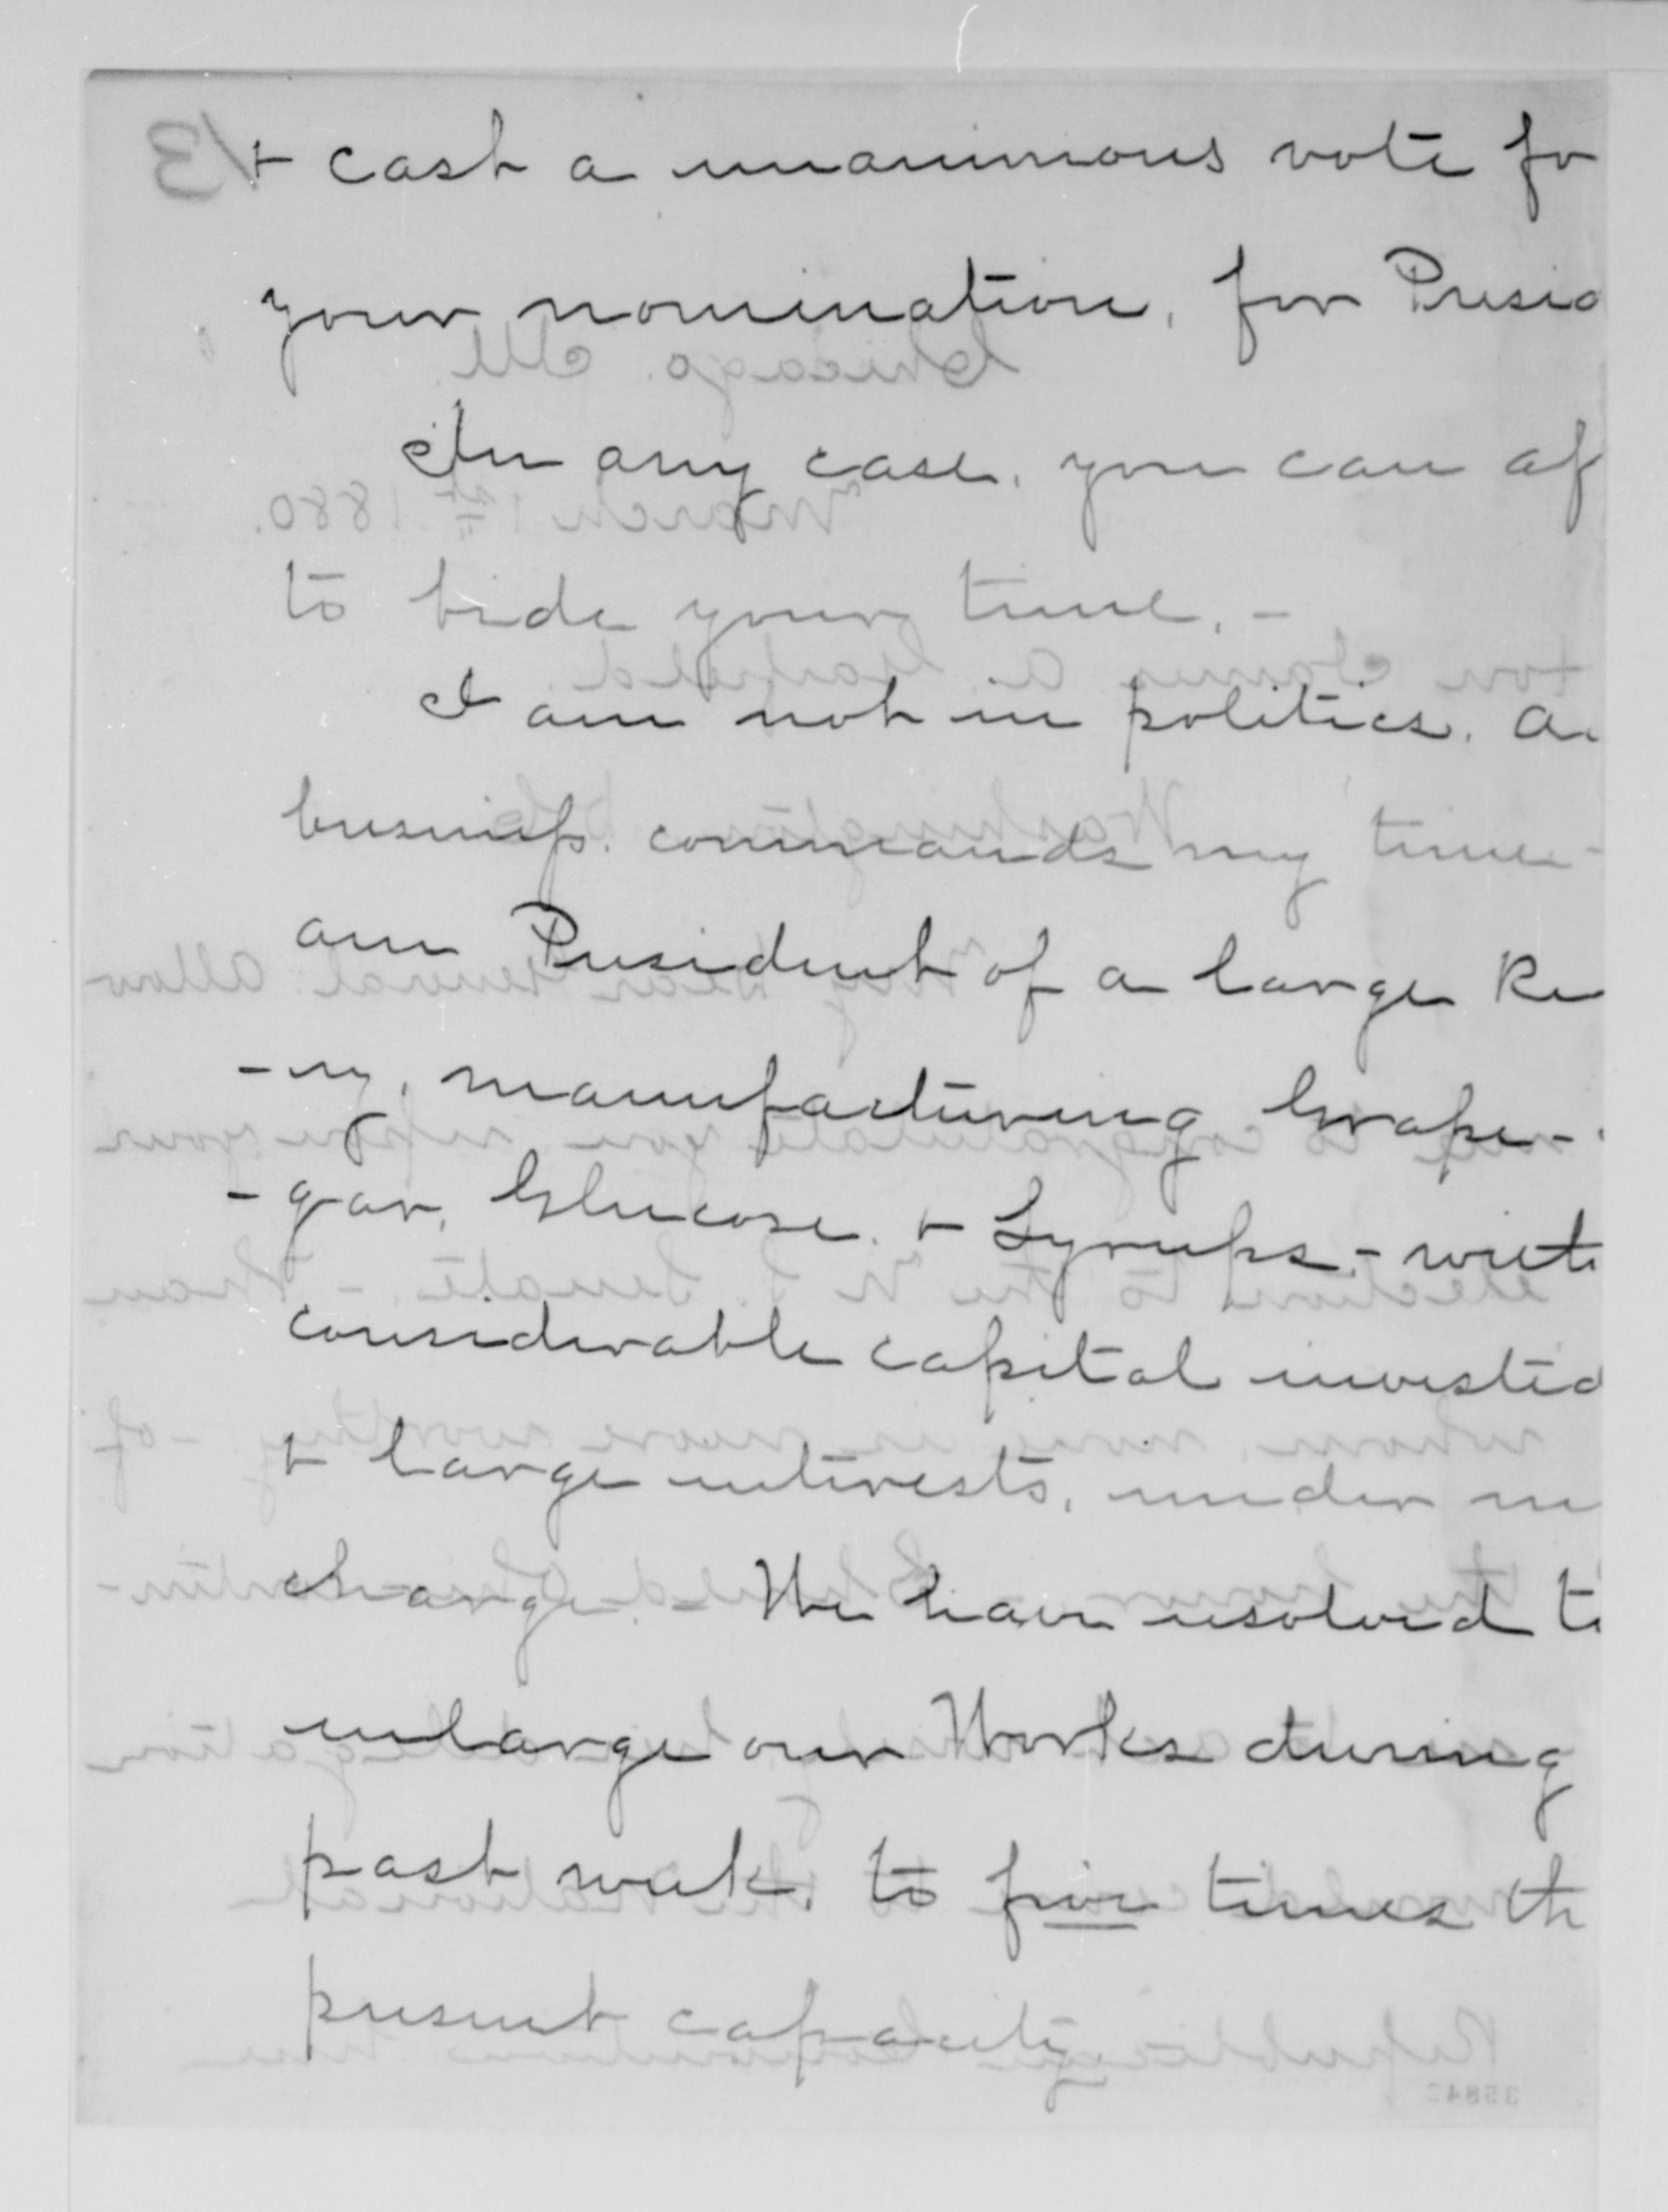 + cast a unanimous vote fo
your nomination, for Presid
In any case, you can af
to bide your time. -
I am not in politics. a
business. commands my time -
am President of a large Re
- ry, manufacturing Grape -
- gar, Glucose. + Syrups - with
considerable capital invested
+ large interests, under m
charge. - We have resolved to
enlarge our Works during
past week, to five times th
present capacity.